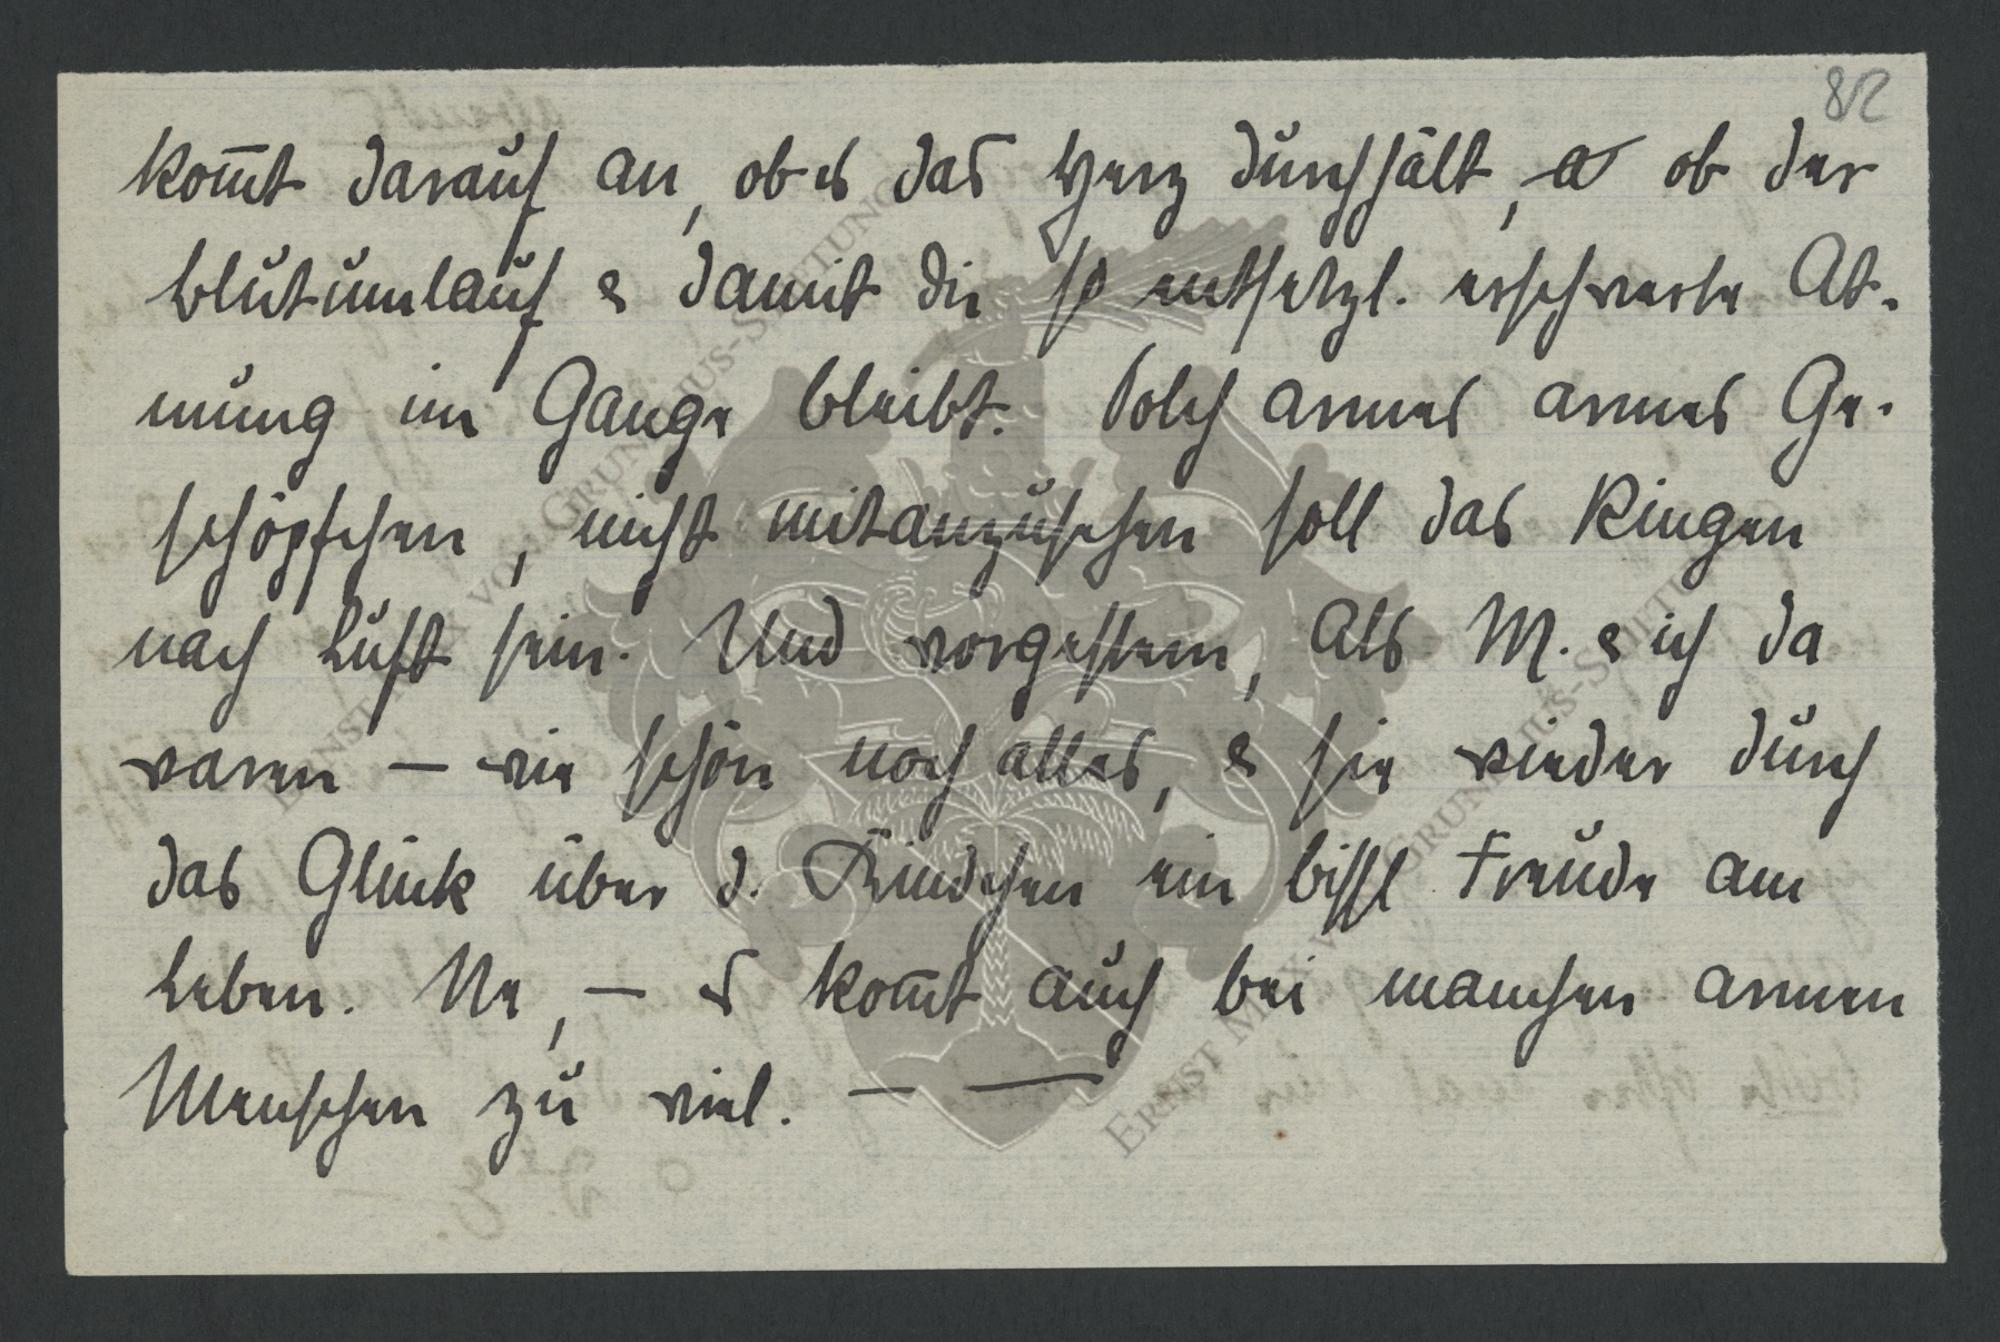 82
kom̅t darauf an, ob es das Herz durchhält, a ob der
Blutumlauf & damit die so entsetzl. erschwerte At-
mung im Gange bleibt. Solch armes armes Ge-
schöpfchen, nicht mitanzusehen soll das Ringen
nach Luft sein. Und vorgestern, als M. & ich da
waren – wie schön noch alles, & sie wieder durch
das Glück über d. Kindchen ein bissl Freude am
Leben. Ne, – es kom̅t auch bei manchen armen
Menschen zu viel. – —
ERNST MAX VON GRUNELIUS-STIFTUNG
ERNST MAX VON GRUNELIUS-STIFTUNG